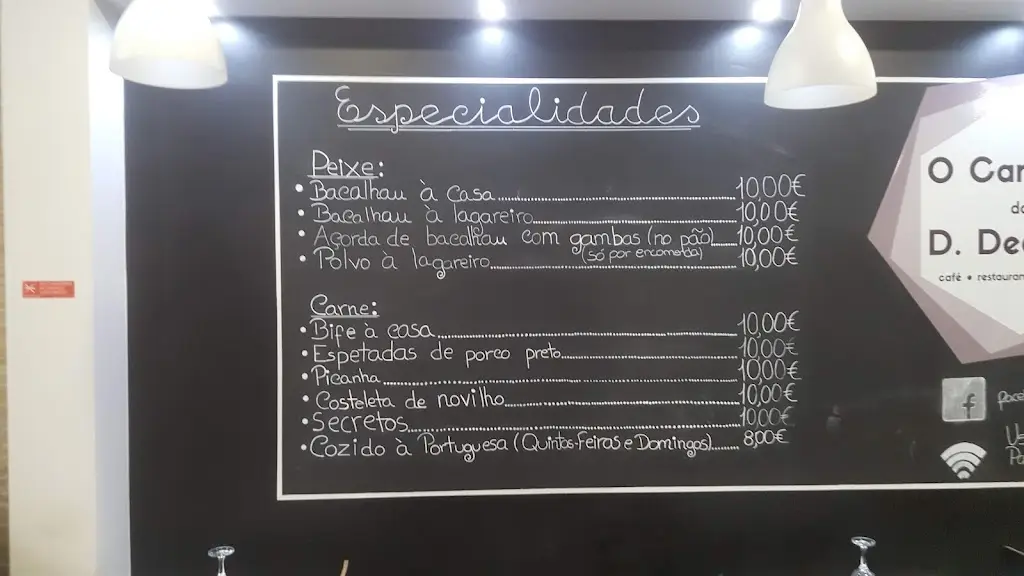 Especialidades
Peixe:
• Bacalhau à casa........10,00€
• Bacalhau à lagareiro........10,00€
• Açorda de bacalhau com gambas (no pão)........10,00€
(só por encomenda)
• Polvo à lagareiro........10,00€
Carne:
• Bife à casa........10,00€
• Espetadas de porco preto........10,00€
• Picanha........10,00€
• Costeleta de novilho........10,00€
• Secretos........10,00€
• Cozido à Portuguesa (Quintas-Feiras e Domingos)........8,00€
O Car
do
D. De
café • restauran
f